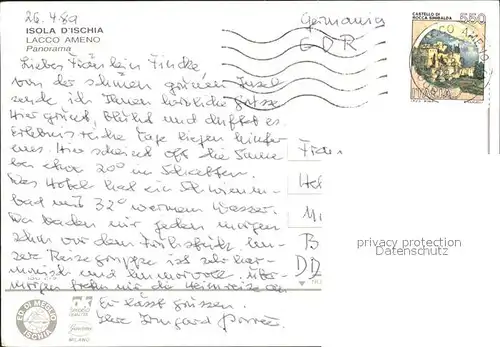 26.4.89
ISOLA D'ISCHIA
LACCO AMENO
Panorama
Germania
GDR
CASTELLO DI
ROCCA SINIBALDA
550
ITALIA
Liebes Fräulein Findke
von der schönen grünen Insel
sende ich Ihnen herzliche Grüße
Hier grünt, blüht und duftet es.
Erlebnisreiche Tage liegen hinter
uns. Hier scheint oft die Sonne
bei etwa 20° im Schatten.
Das Hotel hat ein Schwimm-
bad mit 32° warmem Wasser.
Da baden wir jeden Morgen
schon vor dem Frühstück. Un-
sere Reisegruppe ist sehr har-
monisch und humorvoll. Über-
morgen treten wir die Heimreise an
Er lässt grüssen.
Ihre Irmgard
Frau
B
DD
privacy protection
Datenschutz
ED. DI MEGLIO
ISCHIA
MILANO